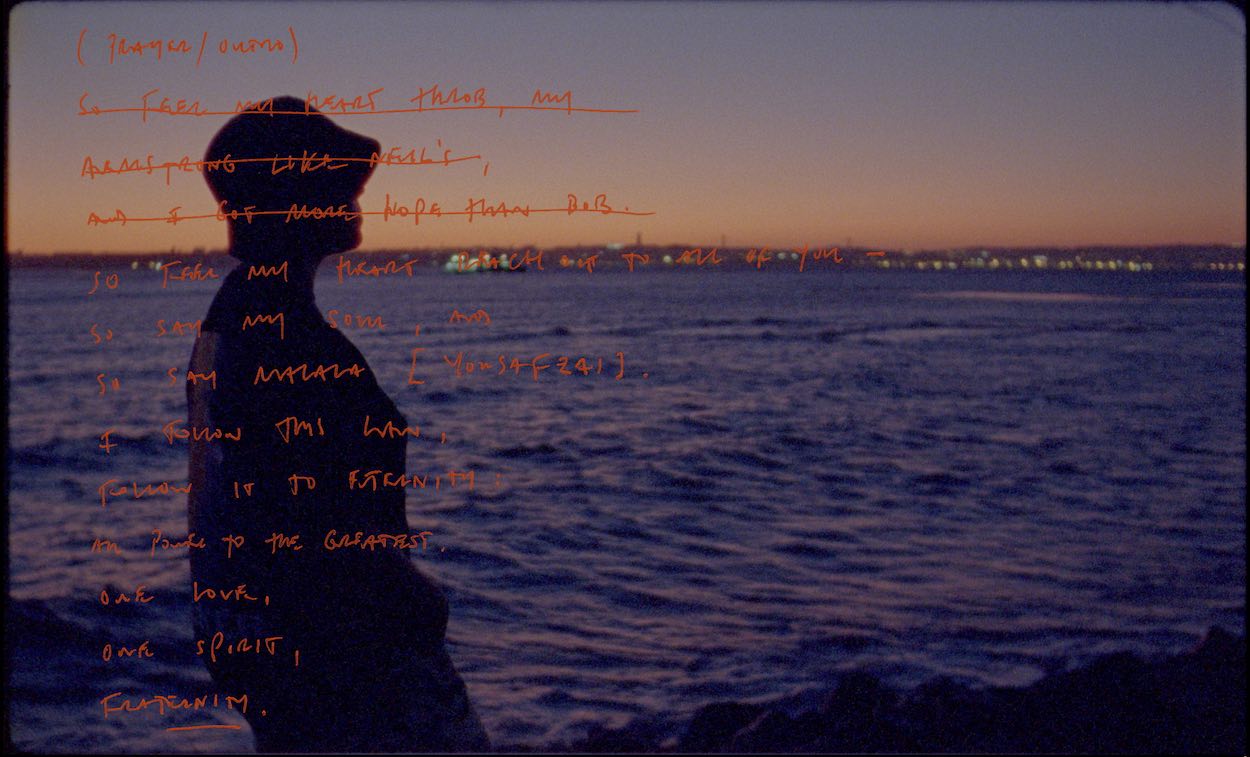 (PRAYER/OUTRO)
SO FEEL MY HEART THROB, MY
ARMSTRONG LIKE NEILL'S,
AND I GOT MORE HOPE THAN BOB.
SO FEEL MY HEART REACH OUT TO ALL OF YOU –
SO SAY MY SOUL, AND
SO SAY MALALA [YOUSAFZAI].
I FOLLOW THIS LAW,
FOLLOW IT TO ETERNITY:
ALL POWER TO THE GREATEST.
ONE LOVE,
ONE SPIRIT,
FRATERNITY.